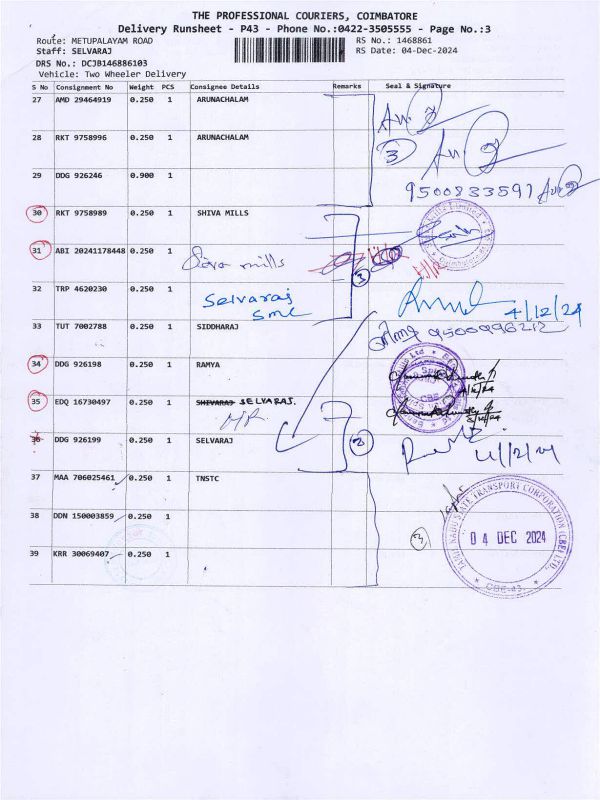 THE PROFESSIONAL COURIERS, COIMBATORE
Delivery Runsheet - P43 - Phone No.:0422-3505555 - Page No.:3
Route: METUPALAYAM ROAD RS No.: 1468861
Staff: SELVARAJ RS Date: 04-Dec-2024
DRS No.: DCJB146886103
Vehicle: Two Wheeler Delivery
S No Consignment No Weight PCS Consignee Details Remarks Seal & Signature
27 AMD 29464919 0.250 1 ARUNACHALAM
28 RKT 9758996 0.250 1 ARUNACHALAM
3
29 DDG 926246 0.900 1
9500833597
30 RKT 9758989 0.250 1 SHIVA MILLS
31 ABI 20241178448 0.250 1 Shiva mills
3
32 TRP 4620230 0.250 1 Selvaraj
SML
4/12/24
33 TUT 7002788 0.250 1 SIDDHARAJ 9500996212
34 DDG 926198 0.250 1 RAMYA
35 EDQ 16730497 0.250 1 SHIVARAJ SELVARAJ.
36 DDG 926199 0.250 1 SELVARAJ
2
4/12/24
37 MAA 706025461 0.250 1 TNSTC
38 DDN 150003859 0.250 1
39 KRR 30069407 0.250 1
3
TAMIL NADU STATE TRANSPORT CORPORATION (CBE) LTD.,
04 DEC 2024
CBE-43.